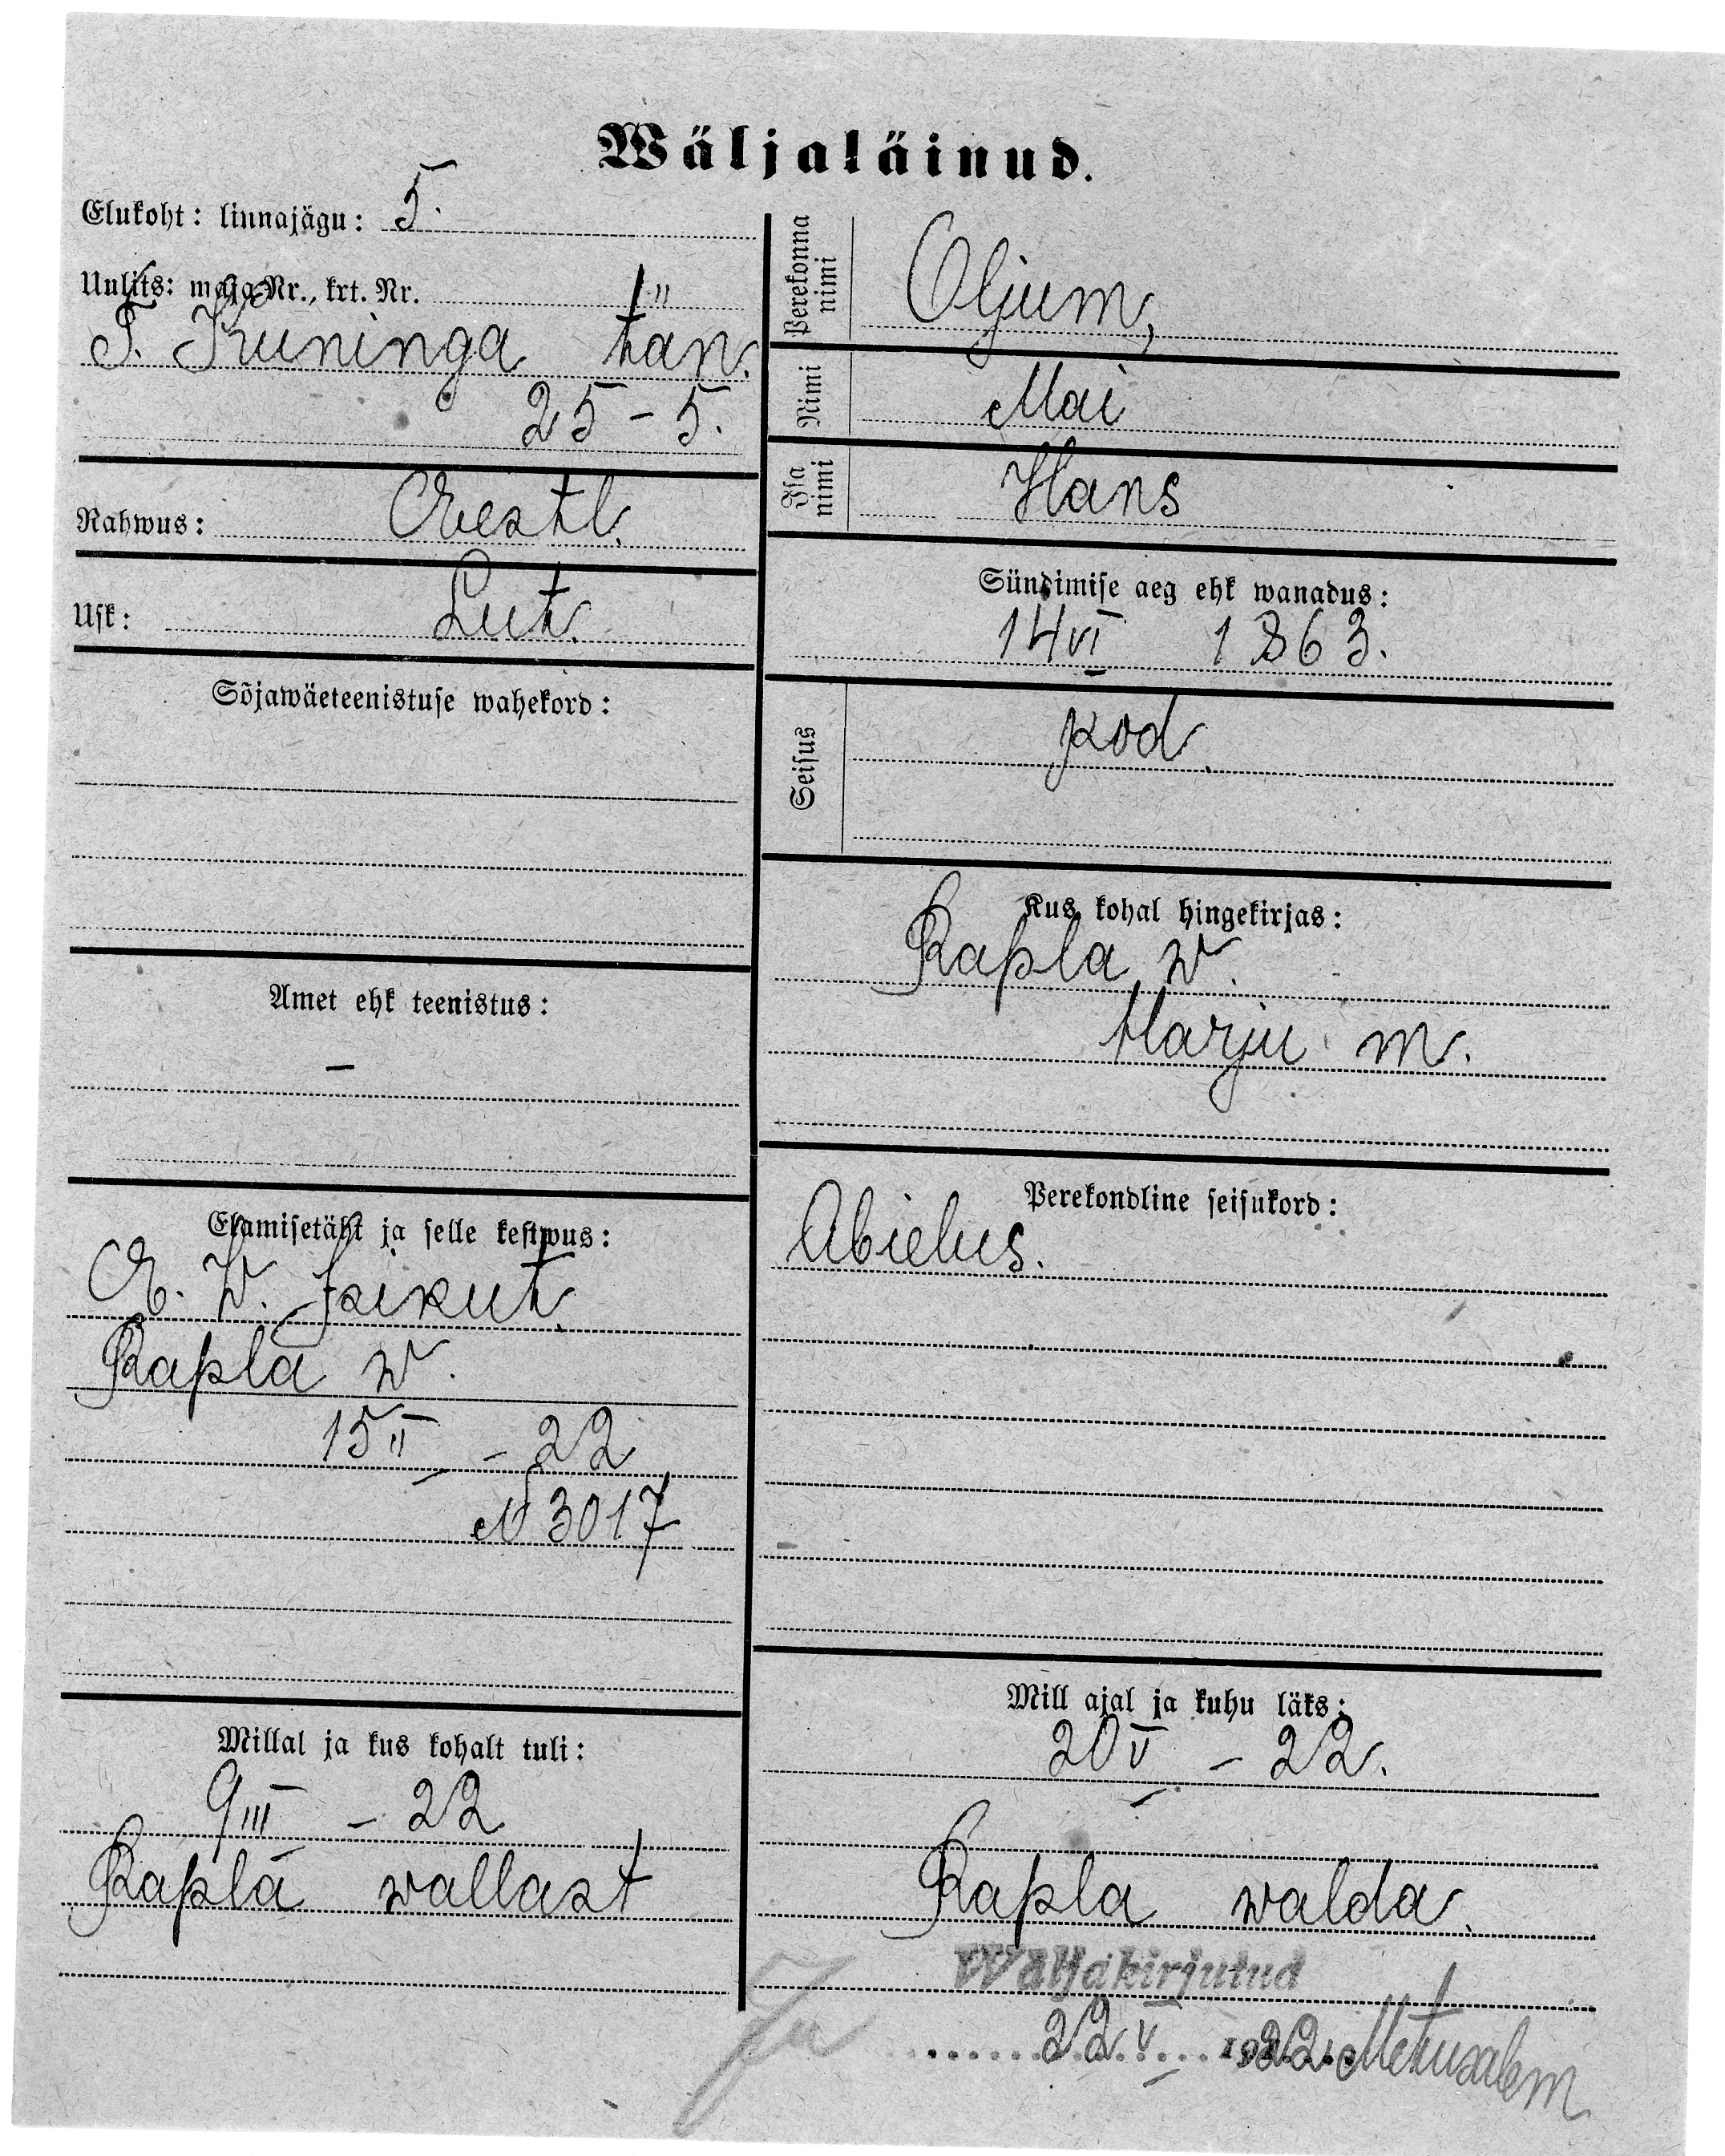 Wäljaläinud.
Elukoht: linnajägu: 5.
Uulits: maja Nr., krt. Nr. "
T. Kuninga tän.
25 - 5.
Rahwus: Eestl.
Usk: Lut.
Sõjawäeteenistuse wahekord:
Amet ehk teenistus:
–
Elamisetäht ja selle kestwus:
E. W. isikut.
Rapla w.
15 II - 22
N 3017
Millal ja kus kohalt tuli:
9 III - 22
Rapla wallast
Perekonna nimi Oljum,
Nimi Mai
Isa nimi Hans
Sündimise aeg ehk wanadus:
14 VI 1863.
Seisus kod.
Kus kohal hingekirjas:
Rapla w.
Harju m.
Perekondline seisukord:
Abielus.
Mill ajal ja kuhu läks:
20 V - 22.
Rapla walda.
Wäljakirjutud
22 V 1922 Metusalem